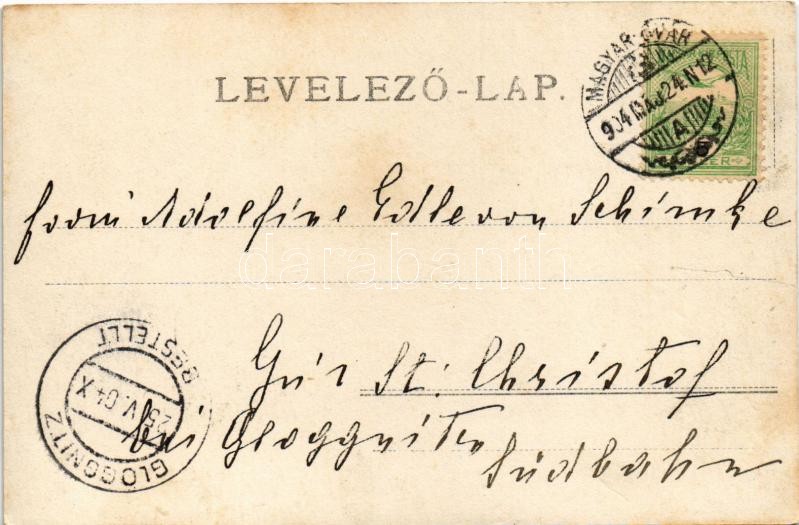 LEVELEZŐ-LAP.
MAGYAR-ÓVÁR
904 MÁJ. 24. N12
A
5
Adolfine Edle von Schimke
darabanth
Gut St: Christof
bei Gloggnitz
Südbahn
GLOGGNITZ
25.V.04 X
BESTELLT